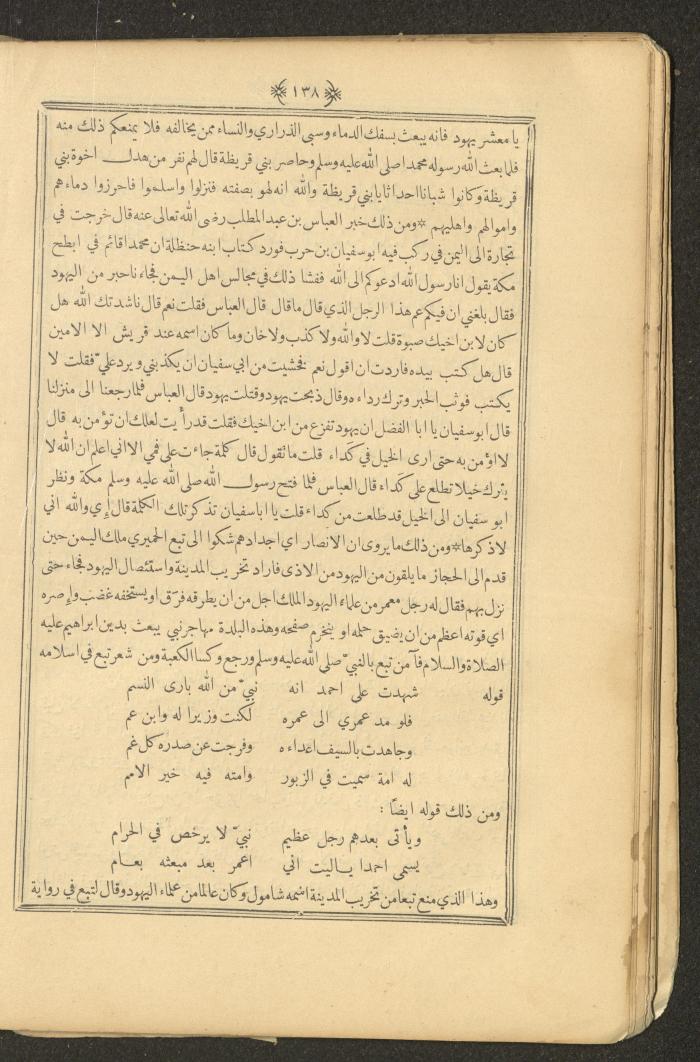 ١٣٨
يا معشر يهود فانه يبعث بسفك الدماء وسبى الذراري والنساء ممن يخالفه فلا يمنعكم ذلك منه
فلما بعث الله رسوله محمدا صلى الله عليه وسلم وحاصر بني قريظة قال لهم نفر من هدل اخوة بني
قريظة وكانوا شبانا احداثا يا بني قريظة والله انه لهو بصفته فنزلوا واسلموا فاحرزوا دماءهم
واموالهم واهليهم * ومن ذلك خبر العباس بن عبد المطلب رضى الله تعالى عنه قال خرجت في
تجارة الى اليمن في ركب فيه ابو سفيان بن حرب فورد كتاب ابنه حنظلة ان محمدا قائم في ابطح
مكة يقول انا رسول الله ادعوكم الى الله ففشا ذلك في مجالس اهل اليمن فجاءنا حبر من اليهود
فقال بلغني ان فيكم عم هذا الرجل الذي قال ما قال قال العباس فقلت نعم قال ناشدتك الله هل
كان لابن اخيك صبوة قلت لا والله ولا كذب ولا خان وما كان اسمه عند قريش الا الامين
قال هل كتب بيده فاردت ان اقول نعم فخشيت من ابي سفيان ان يكذبني ويرد عليّ فقلت لا
يكتب فوثب الحبر وترك رداءه وقال ذبحت يهود وقتلت يهود قال العباس فلما رجعنا الى منزلنا
قال ابو سفيان يا ابا الفضل ان يهود تفزع من ابن اخيك فقلت قد رأيت لعلك ان تؤمن به قال
لا اؤمن به حتى ارى الخيل في كَداء قلت ما تقول قال كلمة جاءت على فمي الا اني اعلم ان الله لا
يترك خيلا تطلع على كَداء قال العباس فلما فتح رسول الله صلى الله عليه وسلم مكة ونظر
ابو سفيان الى الخيل قد طلعت من كداء قلت يا ابا سفيان تذكر تلك الكلمة قال إي والله اني
لاذكرها * ومن ذلك ما يروى ان الانصار اي اجدادهم شكوا الى تبع الحميري ملك اليمن حين
قدم الى الحجاز ما يلقون من اليهود من الاذى فاراد تخريب المدينة واستئصال اليهود فجاء حتى
نزل بهم فقال له رجل معمر من علماء اليهود الملك اجل من ان يطرقه فرَق او يستخفه غضب وإصره
اي قوته اعظم من ان يضيق حمله او ينخرم صفحه وهذه البلدة مهاجر نبي يبعث بدين ابراهيم عليه
الصلاة والسلام فآمن تبع بالنبيّ صلى الله عليه وسلم ورجع وكسا الكعبة ومن شعر تبع في اسلامه
قوله شهدت على احمد انه نبيّ من الله بارى النسم
فلو مد عمري الى عمره لكنت وزيرا له وابن عم
وجاهدت بالسيف اعداءه وفرجت عن صدره كل غم
له امة سميت في الزبور وامته فيه خير الامم
ومن ذلك قوله ايضًا :
ويأتى بعدهم رجل عظيم نبيّ لا يرخص في الحرام
يسمى احمدا ياليت اني اعمر بعد مبعثه بعام
وهذا الذي منع تبعا من تخريب المدينة اسمه شامول وكان عالما من علماء اليهود وقال لتبع في رواية